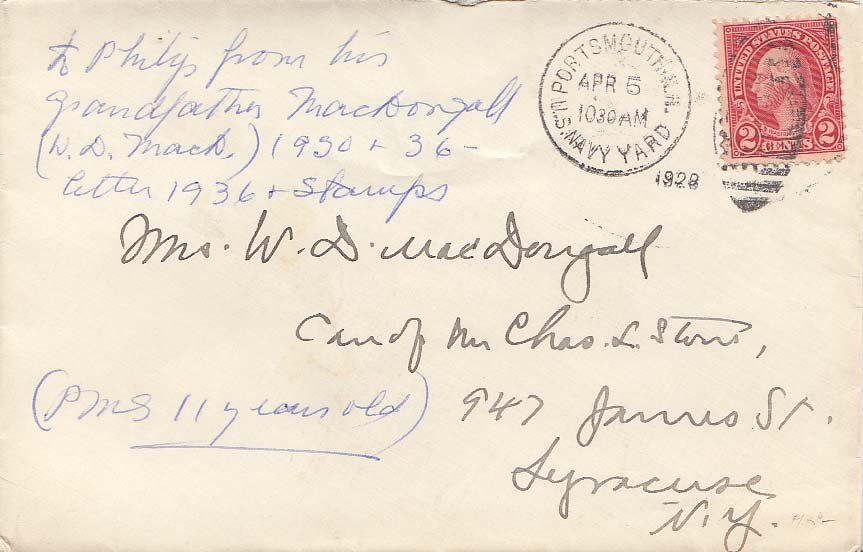 to Philip from his
grandfather MacDongall
(W. D. MacD.) 1930 + 36 -
letter 1936 + Stamps
PORTSMOUTH, N.H.
APR 5
1030 AM
U.S. NAVY YARD
1928
UNITED STATES POSTAGE
2 CENTS 2
Mrs. W. D. MacDongall
Care of Mr Chas. L. Stone,
(PMS 11 years old)
947 James St.
Syracuse
N.Y.